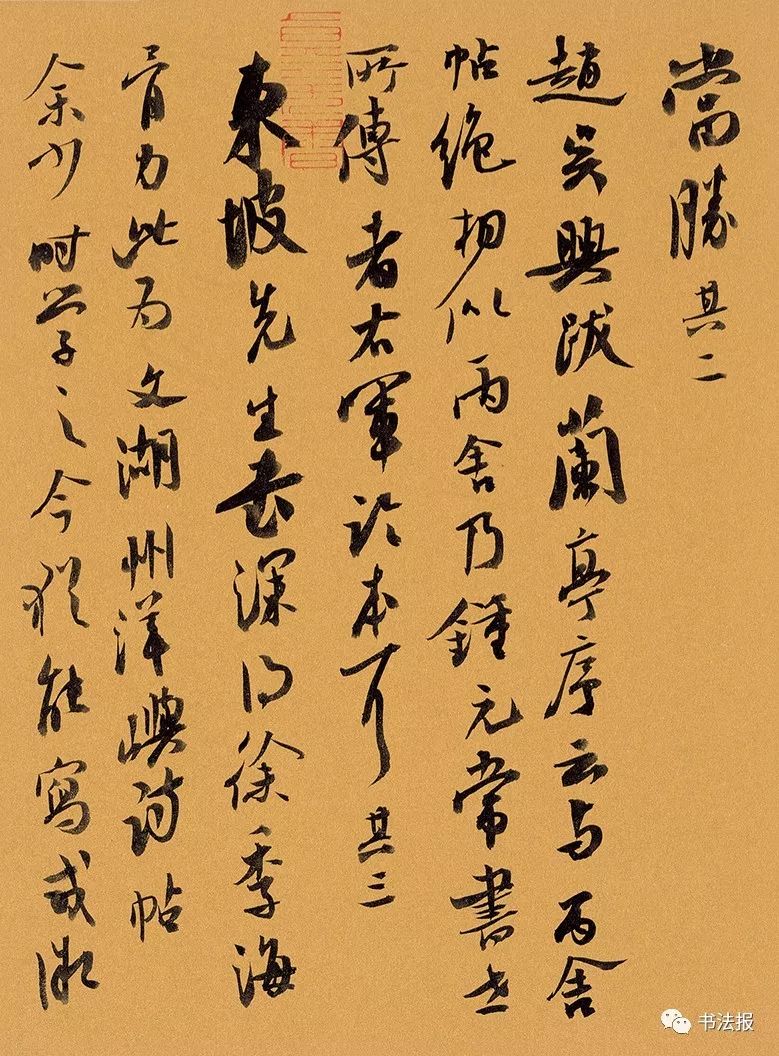 當勝其二
趙吳興跋蘭亭序云与丙舍
帖绝相似丙舍乃鍾元常書世
所傳者右軍临本耳其三
東坡先生書深得徐季海
骨力此为文湖州洋嶼诗帖
余少时学之今猶能寫或微
书法报